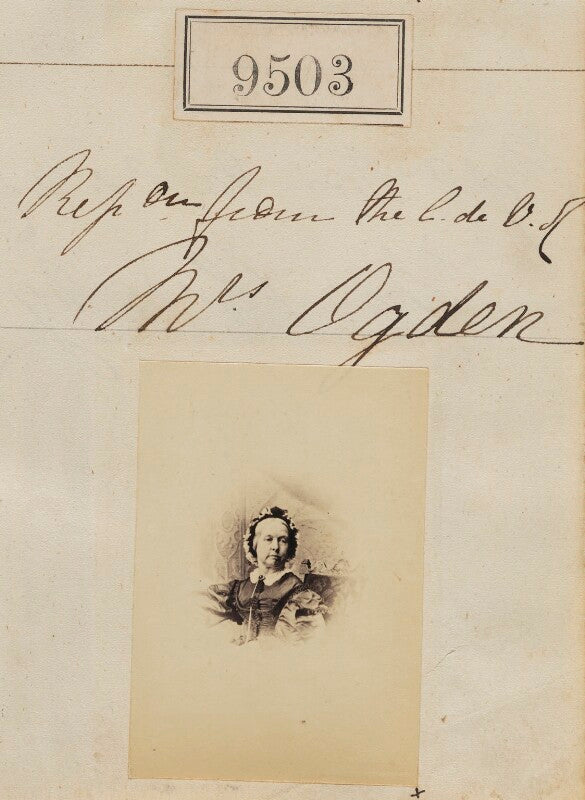 9503
Rep on from the C. de V. of
Mrs Ogden
x